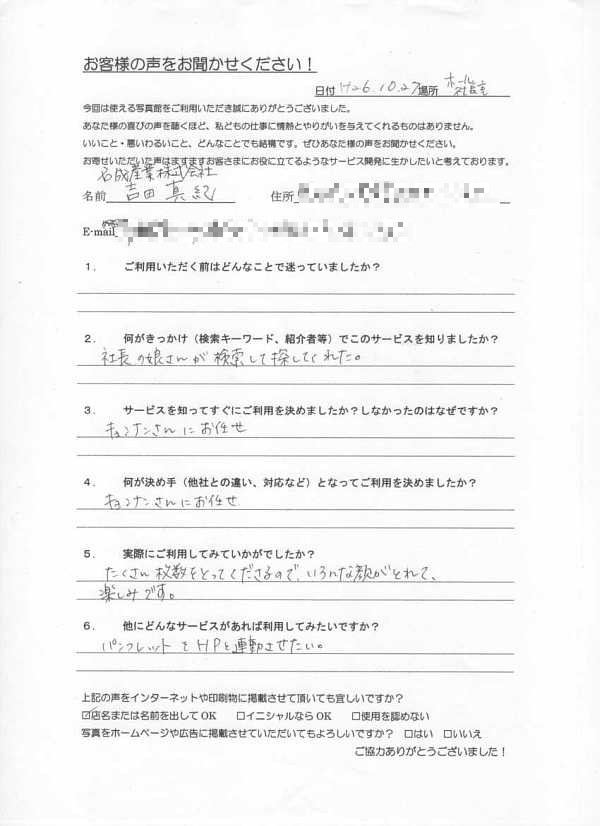 お客様の声をお聞かせください！
日付 H26.10.27 場所 ホール 社長室
今回は使える写真館をご利用いただき誠にありがとうございました。
あなた様の喜びの声を聴くほど、私どもの仕事に情熱とやりがいを与えてくれるものはありません。
いいこと・悪いわるいこと、どんなことでも結構です。ぜひあなた様の声をお聞かせください。
お寄せいただいた声はますますお客さまにお役に立てるようなサービス開発に生かしたいと考えております。
名成産業株式会社
名前 吉田 真紀 住所
E-mail
１． ご利用いただく前はどんなことで迷っていましたか？
２． 何がきっかけ（検索キーワード、紹介者等）でこのサービスを知りましたか？
社長の娘さんが検索して探してくれた。
３． サービスを知ってすぐにご利用を決めましたか？しなかったのはなぜですか？
キョンナンさんにお任せ
４． 何が決め手（他社との違い、対応など）となってご利用を決めましたか？
キョンナンさんにお任せ
５． 実際にご利用してみていかがでしたか？
たくさん枚数をとってくださるので、いろんな顔がとれて、
楽しみです。
６． 他にどんなサービスがあれば利用してみたいですか？
パンフレットをHPと連動させたい。
上記の声をインターネットや印刷物に掲載させて頂いても宜しいですか？
☑店名または名前を出してOK □イニシャルならOK □使用を認めない
写真をホームページや広告に掲載させていただいてもよろしいですか？ □はい □いいえ
ご協力ありがとうございました！